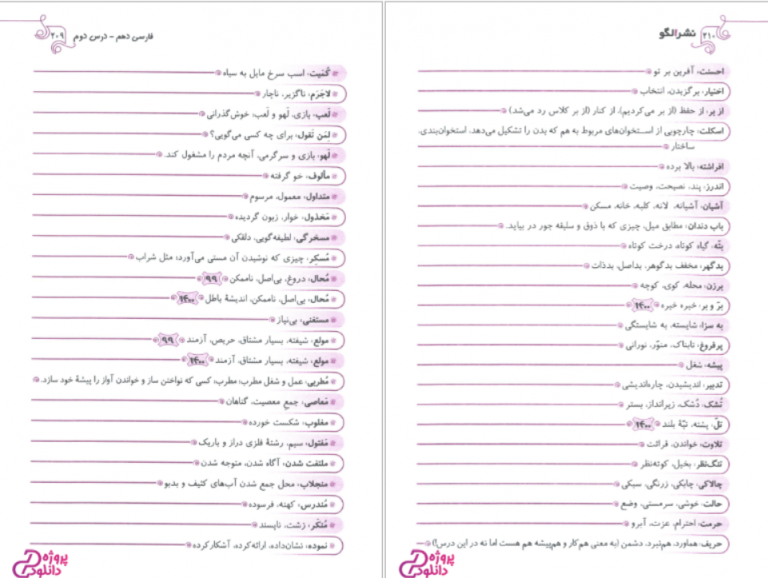 ۲۱۰ نشرالگو
احسنت: آفرین بر تو
اختیار: برگزیدن، انتخاب
از بر: از حفظ (از بر می‌کردیم)، از کنار (از بر کلاس رد می‌شد)
اسکلت: چارچوبی از استخوان‌های مربوط به هم که بدن را تشکیل می‌دهد، استخوان‌بندی،
ساختار
افراشته: بالا برده
اندرز: پند، نصیحت، وصیت
آشیان: آشیانه، لانه، کلبه، خانه، مسکن
باب دندان: مطابق میل، چیزی که با ذوق و سلیقه جور در بیاید.
بتّه: گیاه کوتاه، درخت کوتاه
بدگهر: مخفف بدگوهر، بداصل، بدذات
برزن: محله، کوی، کوچه
برّ و بر: خیره خیره ۱۴۰۰
به سزا: شایسته، به شایستگی
پرفروغ: تابناک، منوّر، نورانی
پیشه: شغل
تدبیر: اندیشیدن، چاره‌اندیشی
تُشک: دُشک، زیرانداز، بستر
تلّ: پشته، تپّهٔ بلند ۱۴۰۰
تلاوت: خواندن، قرائت
تنگ‌نظر: بخیل، کوته‌نظر
چالاکی: چابکی، زرنگی، سبکی
حالت: خوشی، سرمستی، وضع
حرمت: احترام، عزت، آبرو
حریف: هماورد، هم‌نبرد، دشمن (به معنی هم‌کار و هم‌پیشه هم هست اما نه در این درس!)
پروژه
دانلود
فارسی دهم – درس دوم ۲۰۹
کُمَیت: اسب سرخ مایل به سیاه
لاجَرَم: ناگزیر، ناچار
لَعب: بازی، لَهو و لَعب: خوش‌گذرانی
لمَن تَقول: برای چه کسی می‌گویی؟
لَهو: بازی و سرگرمی، آنچه مردم را مشغول کند.
مألوف: خو گرفته
متداول: معمول، مرسوم
مَخذول: خوار، زبون گردیده
مسخرگی: لطیفه‌گویی، دلقکی
مُسکر: چیزی که نوشیدن آن مستی می‌آورد؛ مثل شراب
مُحال: دروغ، بی‌اصل، ناممکن ۹۹
مُحال: بی‌اصل، ناممکن، اندیشهٔ باطل ۱۴۰۰
مستغنی: بی‌نیاز
مولع: شیفته، بسیار مشتاق، حریص، آزمند ۹۹
مولع: شیفته، بسیار مشتاق، آزمند ۱۴۰۰
مُطربی: عمل و شغل مطرب؛ مطرب: کسی که نواختن ساز و خواندن آواز را پیشهٔ خود سازد.
مَعاصی: جمعِ معصیت، گناهان
مغلوب: شکست خورده
مَفتول: سیم، رشتهٔ فلزی دراز و باریک
ملتفت شدن: آگاه شدن، متوجه شدن
منجلاب: محل جمع شدن آب‌های کثیف و بدبو
مُندرس: کهنه، فرسوده
مُنکَر: زشت، ناپسند
نموده: نشان‌داده، ارائه‌کرده، آشکارکرده
پروژه
دانلود